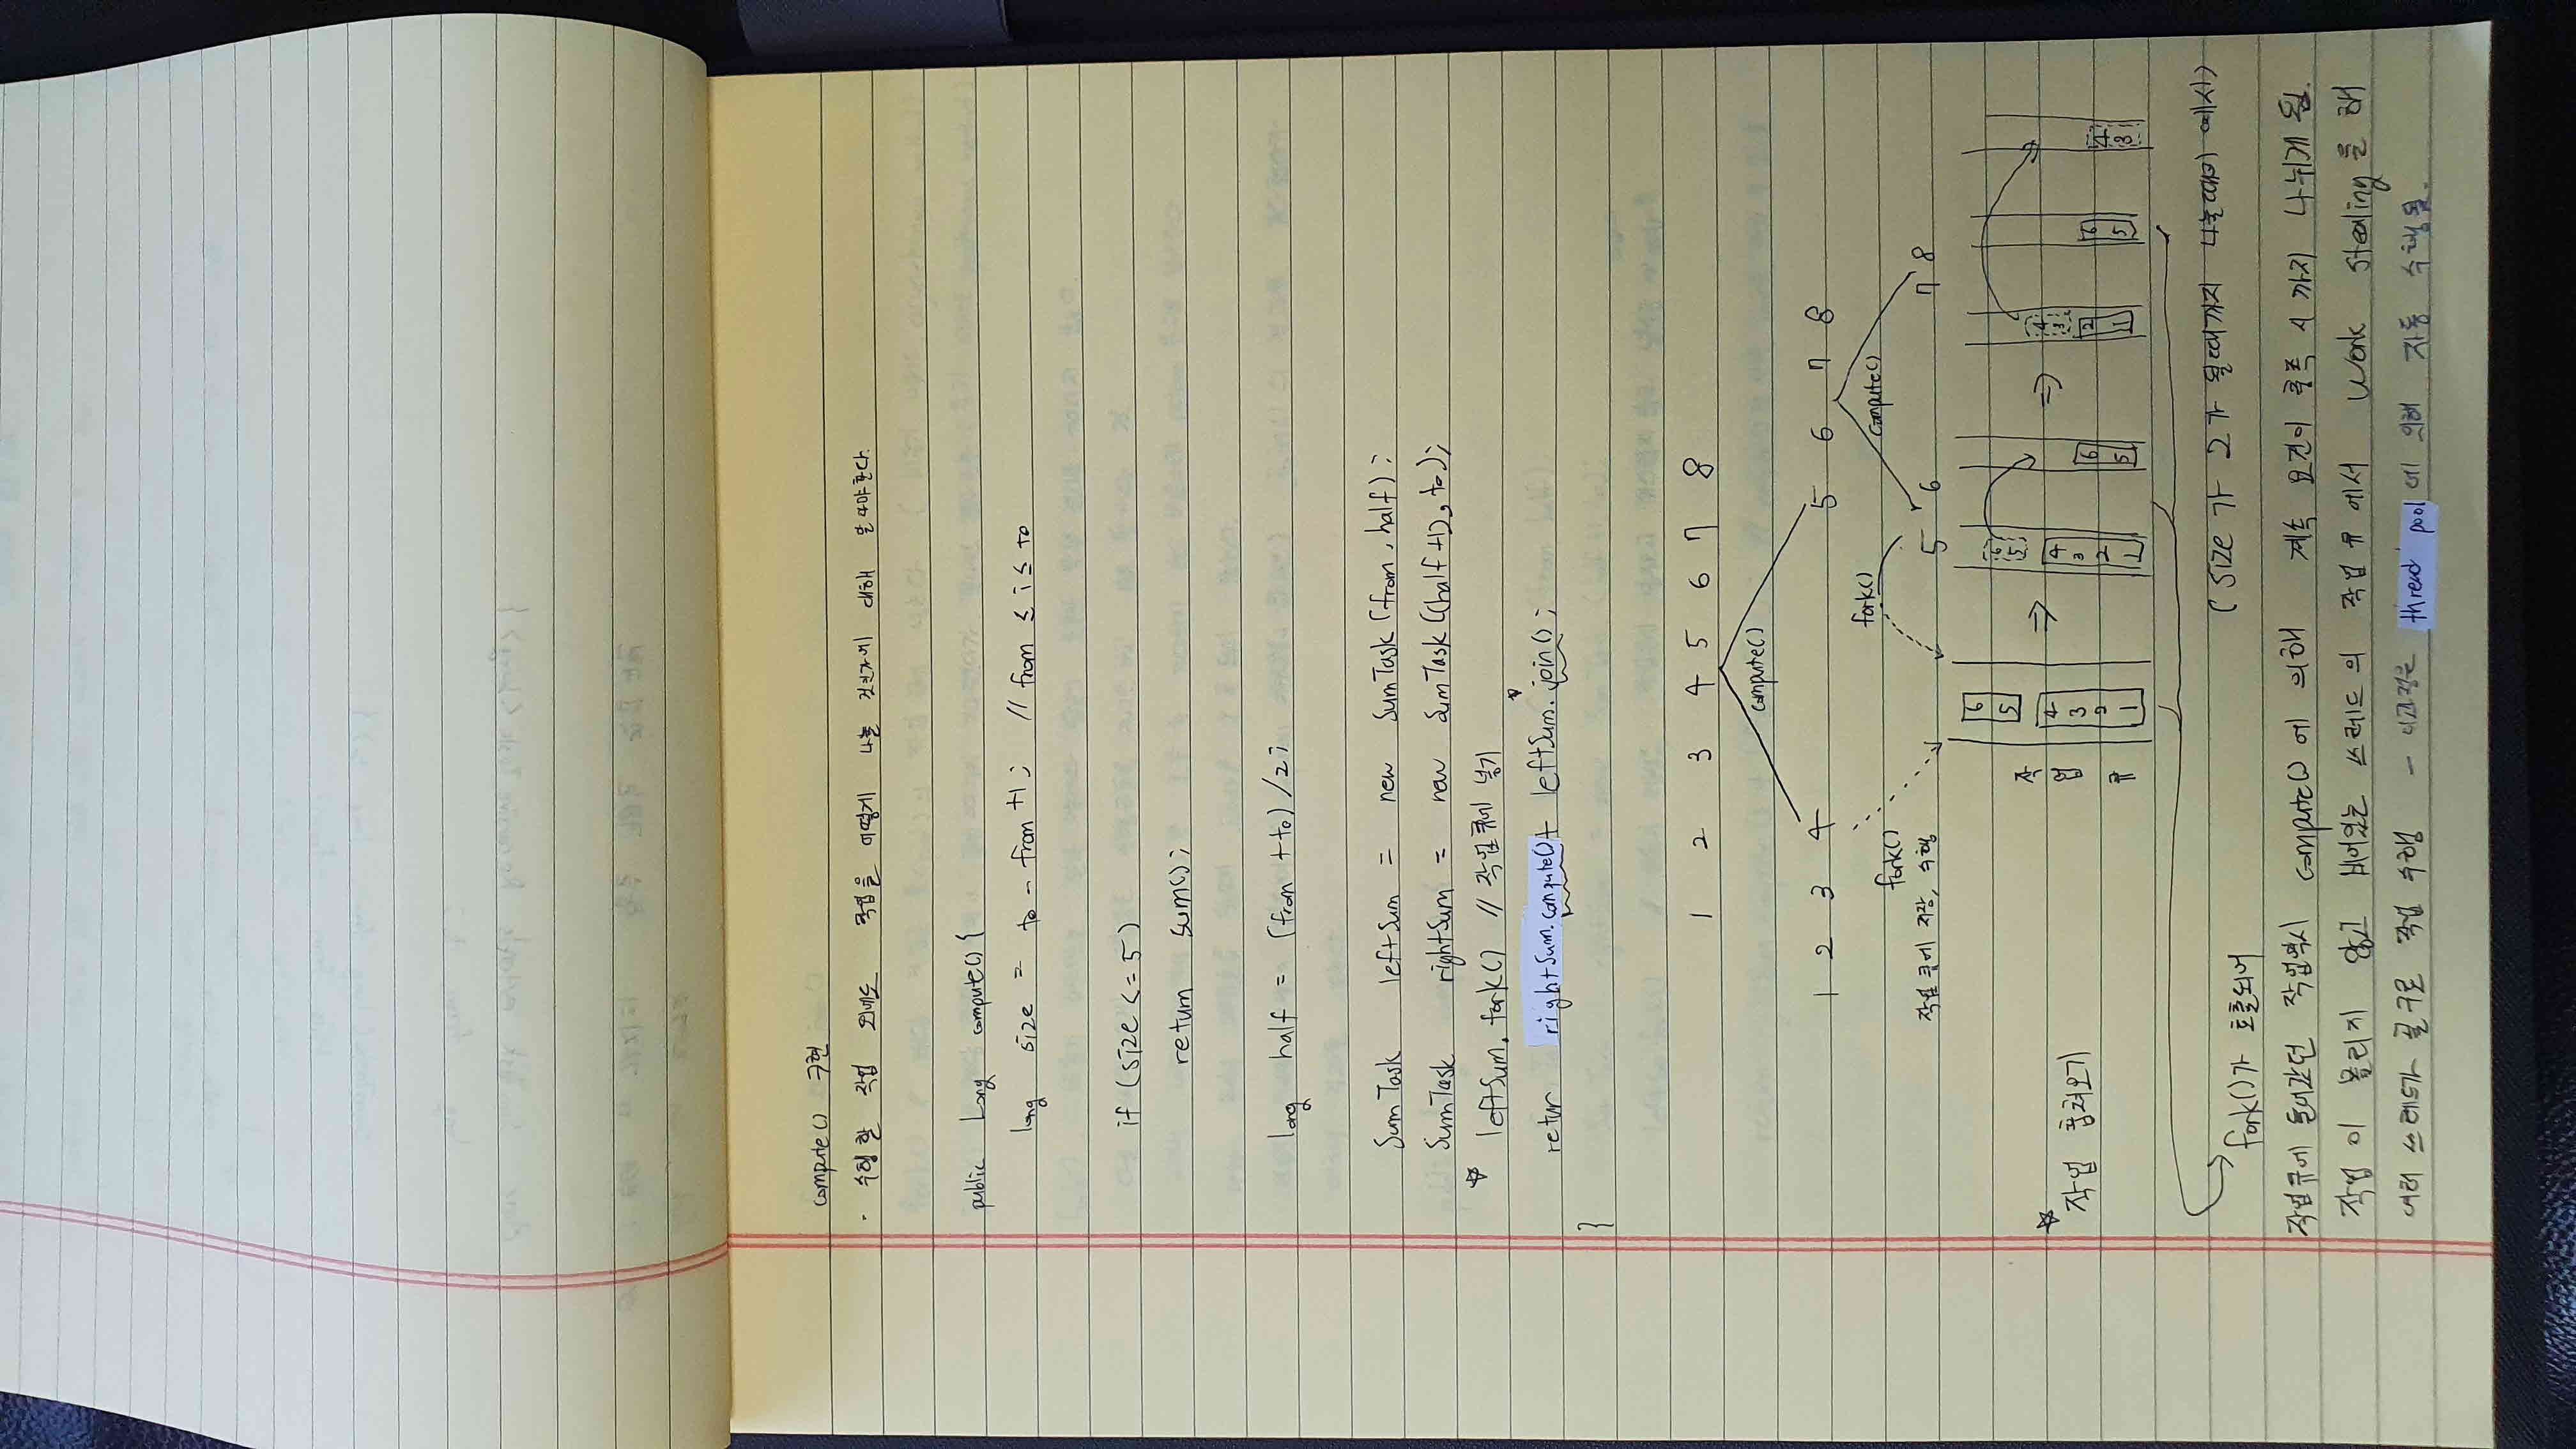 compute() 구현
· 수행할 작업 외에도 작업을 어떻게 나눌 것인가에 대해 알려야한다.
public Long compute() {
long size = to - from +1; // from ≤ i ≤ to
if (size <= 5)
return sum();
long half = (from + to) /2;
SumTask leftSum = new SumTask(from, half);
SumTask rightSum = new SumTask((half +1), to);
☆ leftSum. fork() // 작업큐에 넣기
retur rightSum. compute() + leftSum. join();
}
1 2 3 4 5 6 7 8
compute()
1 2 3 4 5 6 7 8
fork() fork() compute()
작업큐에 저장, 수행 5 6 7 8
작업큐
6 5 4 3 2 1 ⇒ 6 5 4 3 2 1 6 5 ⇒ 4 3 2 1 6 5 4 3
☆ 작업 훔쳐오기
(size가 2가 될때까지 나눌때의 예시)
fork()가 호출되어
작업큐에 들어간던 작업역시 compute()에 의해 계속 요건이 충족 시 까지 나뉘게 됨.
작업이 몰리지 않고 비어있는 쓰레드의 작업큐에서 Work Stealing을 해
여러 쓰레드가 골구로 작업 수행 – 이과정은 thread pool에 의해 자동 수행됨.